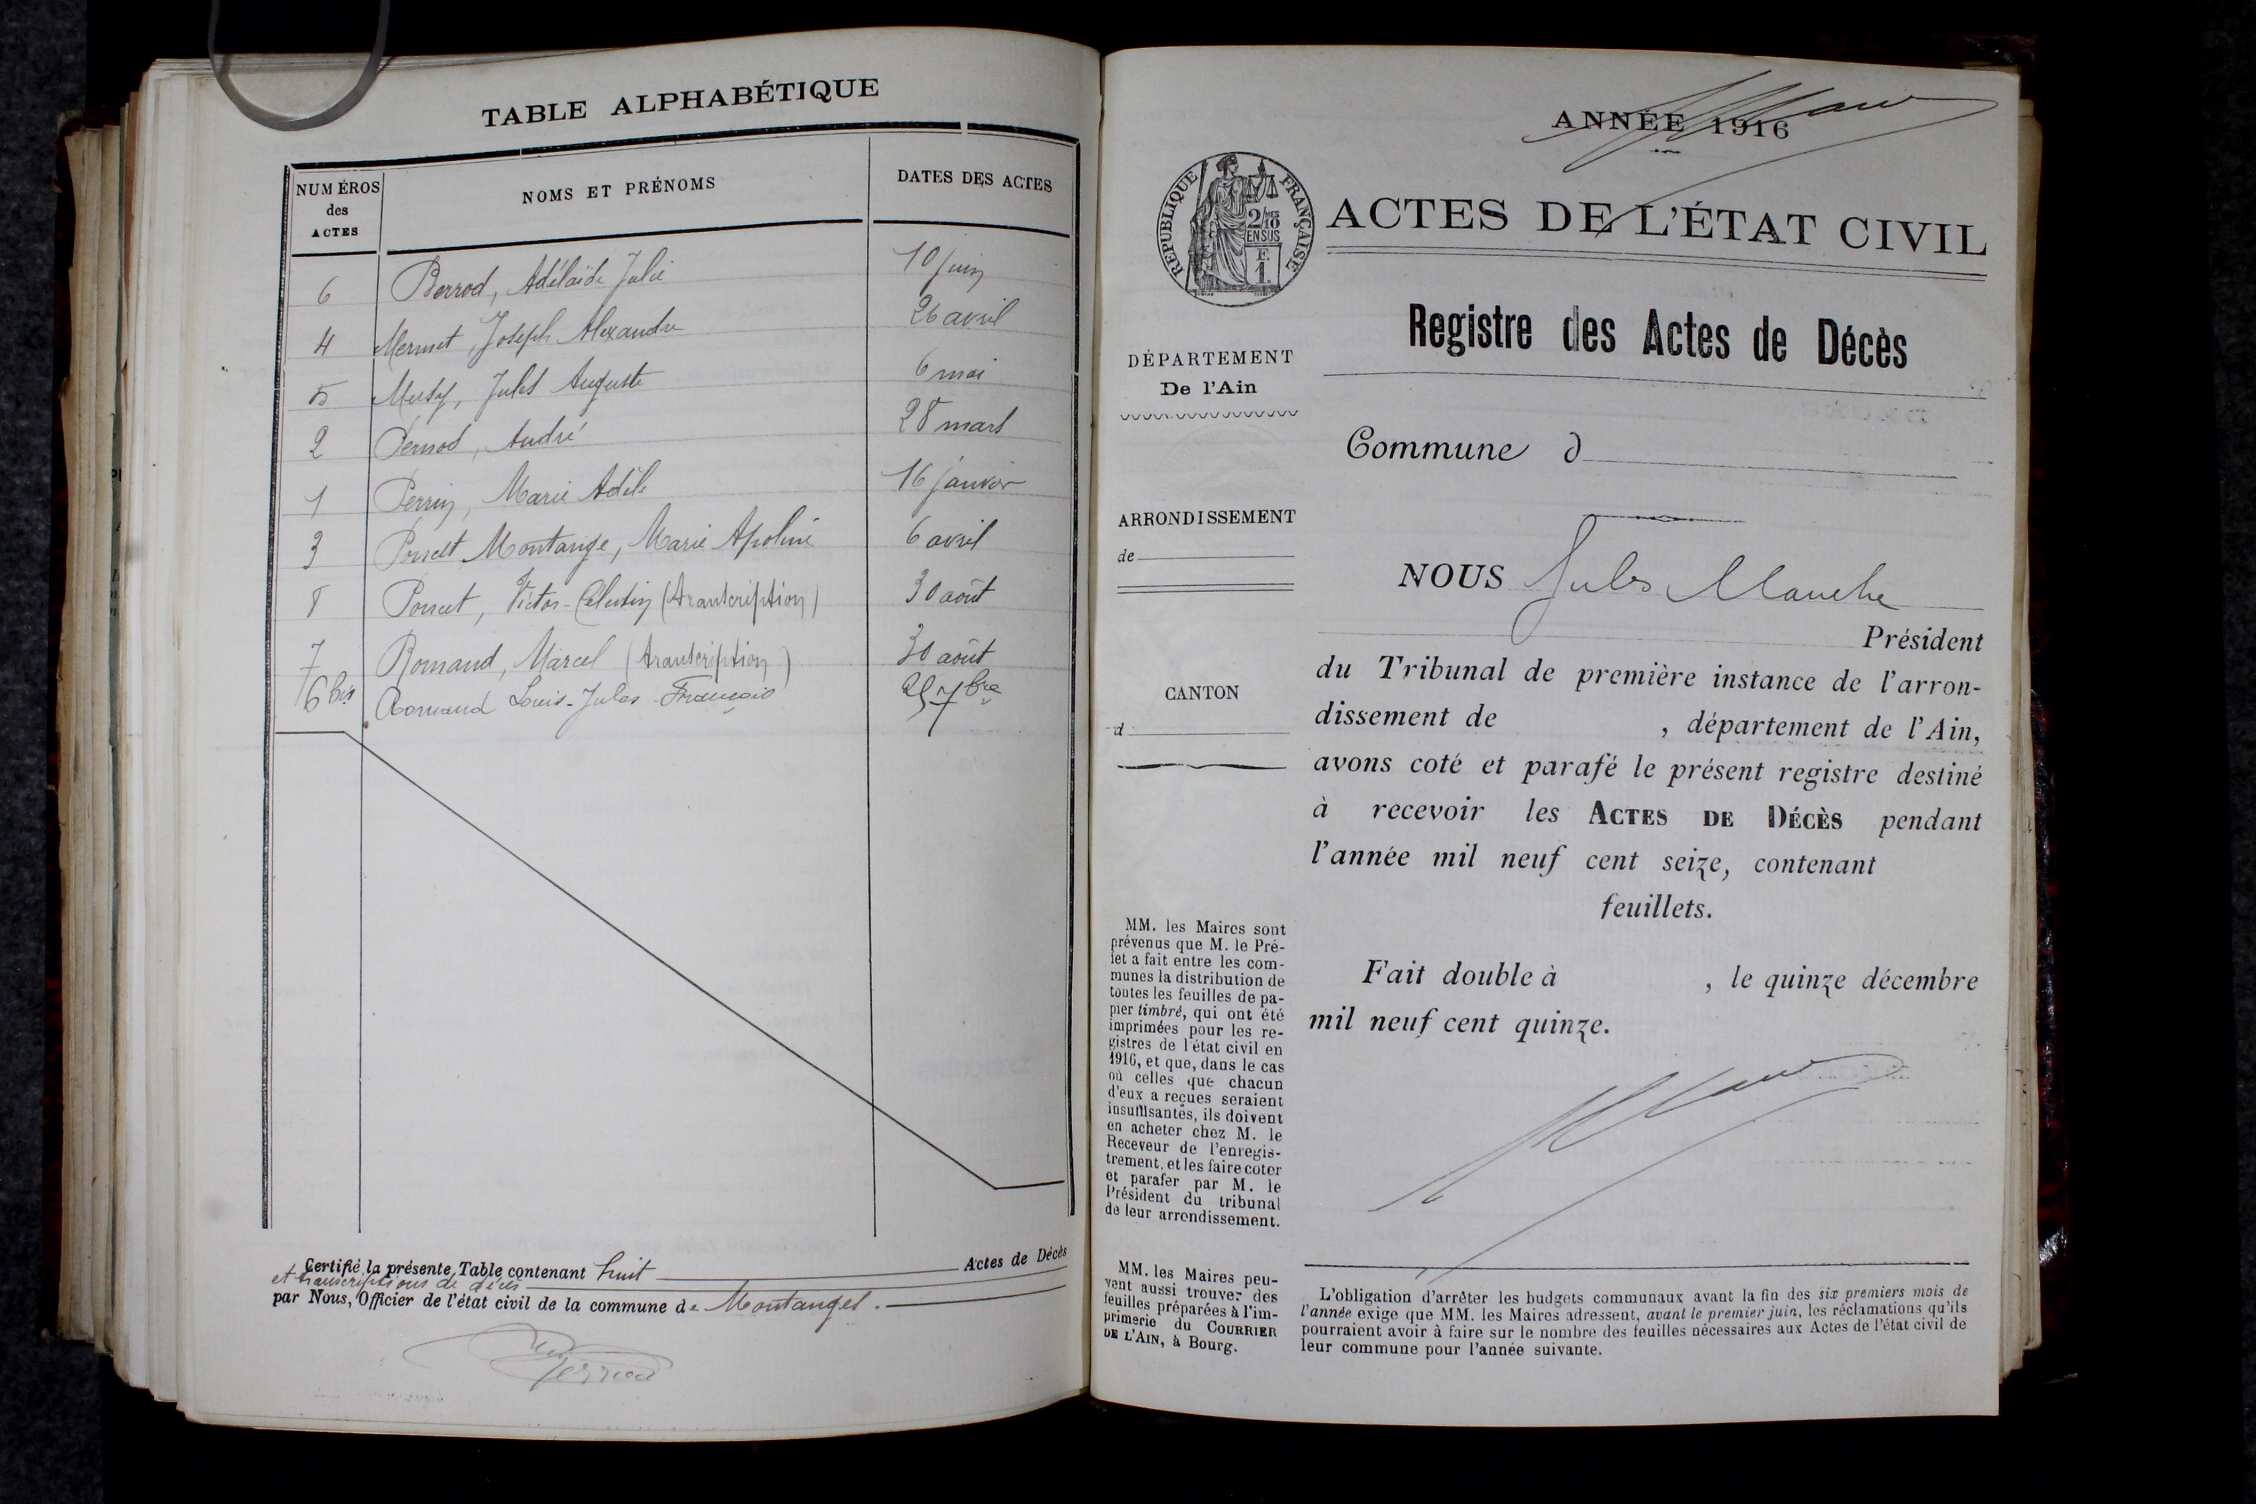 TABLE ALPHABÉTIQUE
NUMÉROS des ACTES NOMS ET PRÉNOMS DATES DES ACTES
6 Berrod, Adélaïde Julie 10 juin
4 Mermet, Joseph Alexandre 26 avril
5 Jules Auguste 6 mai
2 Pernod, André 28 mars
1 Perrin, Marie Adèle 16 janvier
3 Poncet Montange, Marie Apoline 6 avril
8 Poncet, Victor-Célestin (transcription) 30 août
7 Romand, Marcel (transcription) 30 août
6 bis Romand Louis-Jules-François 25 7bre
Certifié la présente Table contenant huit Actes de Décès
et transcriptions de décès
par Nous, Officier de l'état civil de la commune de Montanges.
ANNÉE 1916
RÉPUBLIQUE FRANÇAISE
2/10
EN SUS
E
1.
ACTES DE L'ÉTAT CIVIL
Registre des Actes de Décès
DÉPARTEMENT
De l'Ain
Commune d
ARRONDISSEMENT
de
CANTON
d
NOUS Jules
Président
du Tribunal de première instance de l'arron-
dissement de , département de l'Ain,
avons coté et parafé le présent registre destiné
à recevoir les ACTES DE DÉCÈS pendant
l'année mil neuf cent seize, contenant
feuillets.
Fait double à , le quinze décembre
mil neuf cent quinze.
MM. les Maires sont
prévenus que M. le Pré-
fet a fait entre les com-
munes la distribution de
toutes les feuilles de pa-
pier timbré, qui ont été
imprimées pour les re-
gistres de l'état civil en
1916, et que, dans le cas
où celles que chacun
d'eux a reçues seraient
insuffisantes, ils doivent
en acheter chez M. le
Receveur de l'enregis-
trement, et les faire coter
et parafer par M. le
Président du tribunal
de leur arrondissement.
MM. les Maires peu-
vent aussi trouver des
feuilles préparées à l'im-
primerie du COURRIER
DE L'AIN, à Bourg.
L'obligation d'arrêter les budgets communaux avant la fin des six premiers mois de
l'année exige que MM. les Maires adressent, avant le premier juin, les réclamations qu'ils
pourraient avoir à faire sur le nombre des feuilles nécessaires aux Actes de l'état civil de
leur commune pour l'année suivante.